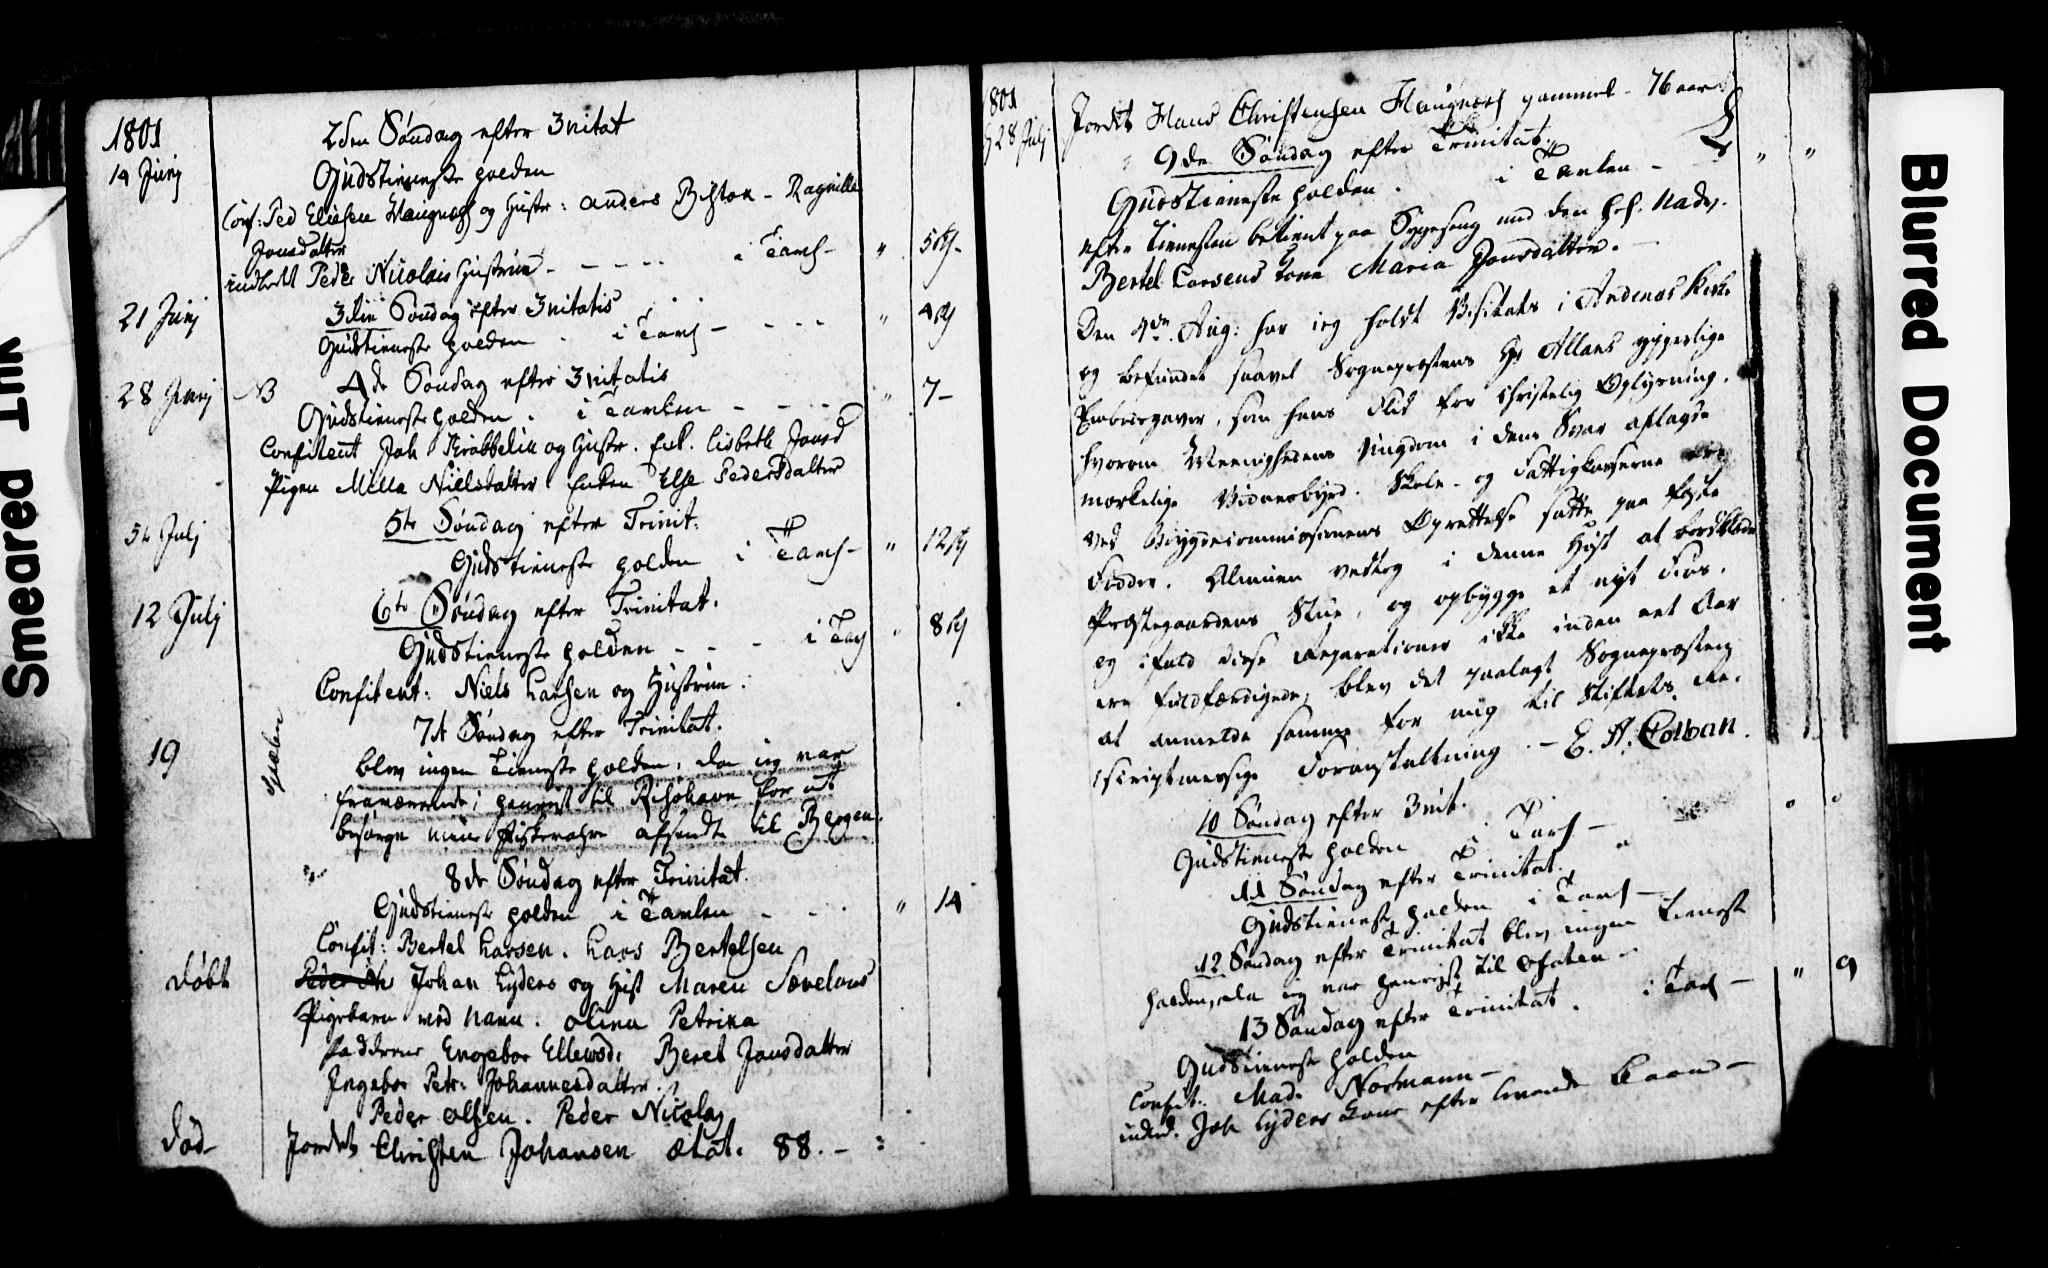 Smeared Ink
Blurred Document
1801
14 Junij
2den Søndag efter 3nitat
Gudstieneste holden
Conf: Ped Eliesen Haugnæs og Hustr: Anders - Ragnilla
Jonsdatter
indledt Peder Nicolais Hustrue - - - - - i Tavl - " 5
21 Junij
3die Søndag efter 3nitatis
Gudstieneste holden . i Tavl - - - - " 4
28 Junij NB 4de Søndag efter 3nitatis
Gudstieneste holden . i Tavlen - - - " 7 -
Confitent Joh Krabbelin og Hustr. Enk. Lisbeth Jonsd
Pigen Milla Nielsdatter Enken Else Pedersdatter
5te Julj
5te Søndag efter Trinit:
Gudstieneste holden i Tavl - " 12
12 Julj
6te Søndag efter Trinitat.
Gudstieneste holden - - - i Tavl " 8
Confitent: Niels Larsen og Hustrue.
7de Søndag efter Trinitat.
19
blev ingen Tieneste holden, da jeg var
fraværende, henreist til Risøhavn for at
besørge mine Fiskevahre afsendte til Bergen.
8de Søndag efter Trinitat.
Gudstieneste holden i Tavlen - - - " 14
Confit: Bertel Larsen. Lars Bertelsen
døbt
Johan Lyders og Hust Maren
Pigebarn ved Navn. Olina Petrina
Fadderne Engebor Ellewsd: Beret Jonsdatter
Ingebor Petr: Johannesdatter.
Peder Olsen. Peder Nicolaj
død - Jordet Christen Johansen ætat. 88. -
1801
28 Julj
Jordet Hans Christensen Haugnæs gammel - 76 aar
9de Søndag efter Trinitat.
Gudstieneste holden . i Tavlen - " "
efter Tienesten betient paa Sygeseng med den Hel. Nadv.
Bertel Larsens Kone Maria Jonsdatter. -
Den 4de Aug: har jeg holdt Visitats i Andenæs Kirke
og befundet saavel Sognepræstens Hr Allans ypperlige
Embedsgaver, som hans Flid for Christelig Oplysning,
hvorom Meenighedens Ungdom i dens Svar aflagde
mærkelige Vidnesbyrd. Skole- og Fattigkasserne ere
ved Bøygdecommissionens Oprettelse satte paa faste
Fødder. Almuen vedtog i denne Høst at bordklæde
Præstegaardens Stue, og opbygge et nyt Fios,
og ifald disse Reparationer ikke inden eet Aar
ere fuldfærdigede, blev det paalagt Sognepræsten
at anmelde samme for mig til Stiftets Re-
scriptmæssige Foranstaltning. - E. A. Colban.
10 Søndag efter 3nit.
Gudstieneste holden i Tavl - " "
11 Søndag efter Trinitat.
Gudstieneste holden i Tavl -
12 Søndag efter Trinitat blev ingen Tieneste
holden, da jeg var henreist til Ofoten -
13 Søndag efter Trinitat. i Tavl - " 9
Gudstieneste holden
Confit: Mad. Normann -
indled. Joh Lyders Kone efter levende Baarn -